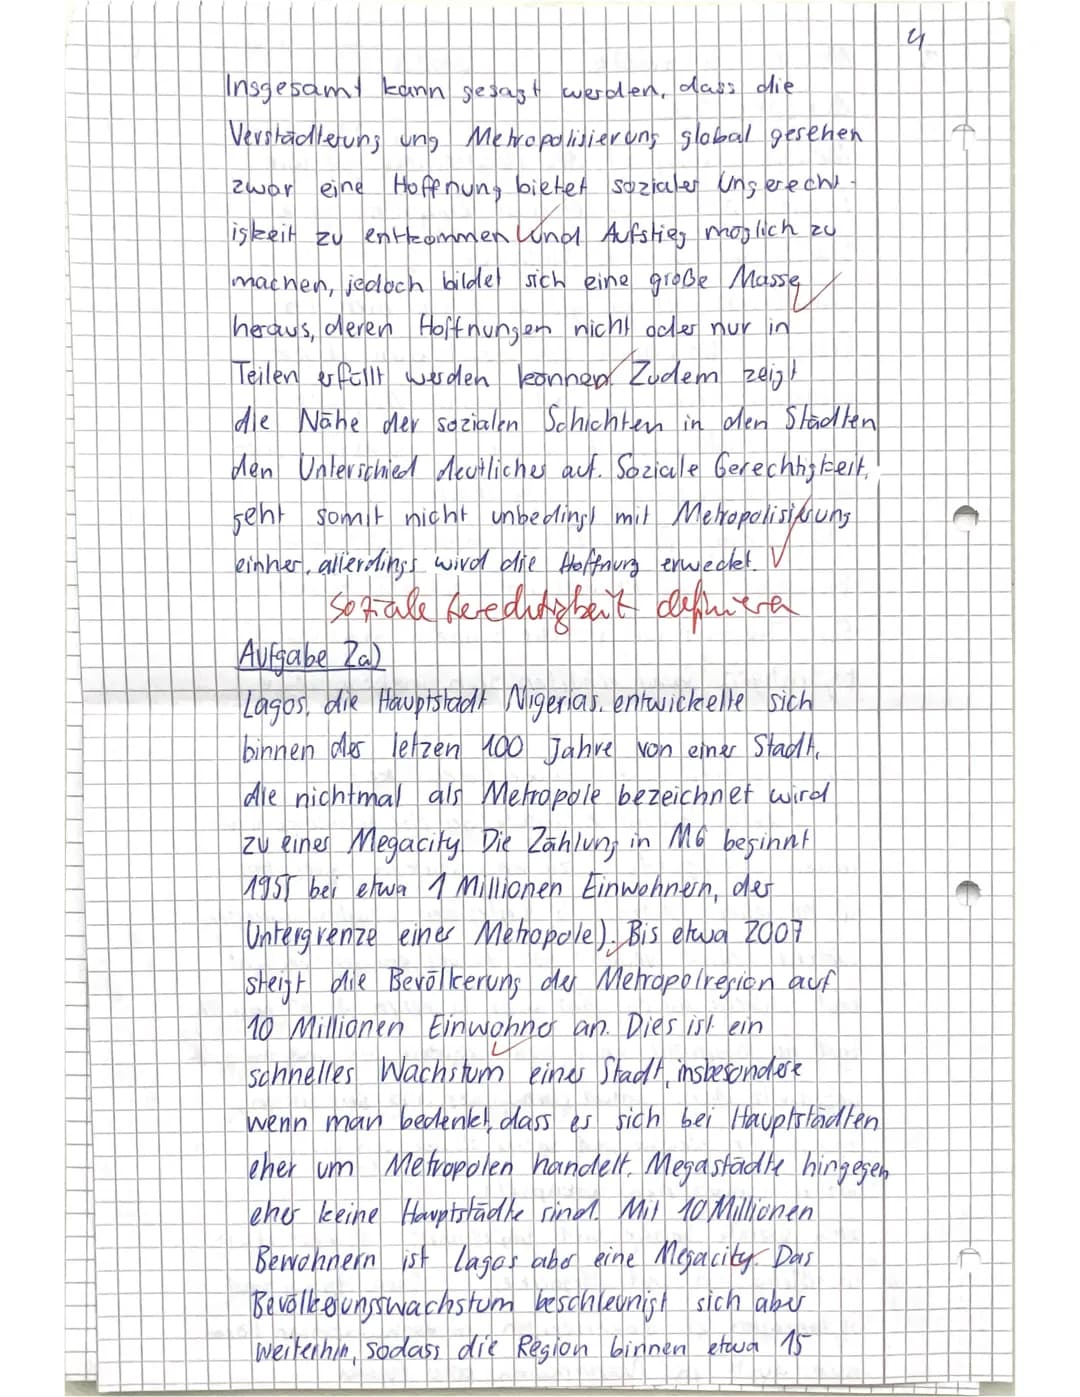 4
Insgesamt kann gesagt werden, dass die
Verstädterung ung Metropolisierung global gesehen
zwar eine Hoffnung bietet sozialer Ungerecht-
igkeit zu entkommen und Aufstieg möglich zu
machen, jedoch bildet sich eine große Masse
heraus, deren Hoffnungen nicht oder nur in
Teilen erfüllt werden können. Zudem zeigt
die Nähe der sozialen Schichten in den Städten
den Unterschied deutlicher auf. Soziale Gerechtigkeit,
geht somit nicht unbedingt mit Metropolisierung
einher, allerdings wird die Hoffnung erweckt.
Soziale Gerechtigkeit definieren
Aufgabe 2a)
Lagos, die Hauptstadt Nigerias, entwickelte sich
binnen der letzen 100 Jahre von einer Stadt,
die nichtmal als Metropole bezeichnet wird
zu einer Megacity. Die Zählung in M6 beginnt
1955 bei etwa 1 Millionen Einwohnern, der
Untergrenze einer Metropole). Bis etwa 2007
steigt die Bevölkerung der Metropolregion auf
10 Millionen Einwohner an. Dies ist ein
schnelles Wachstum einer Stadt, insbesondere
wenn man bedenkt, dass es sich bei Hauptstädten
eher um Metropolen handelt, Megastädte hingegen
eher keine Hauptstädte sind. Mit 10 Millionen
Bewohnern ist Lagos aber eine Megacity. Das
Bevölkerungswachstum beschleunigt sich aber
weiterhin, sodass die Region binnen etwa 15